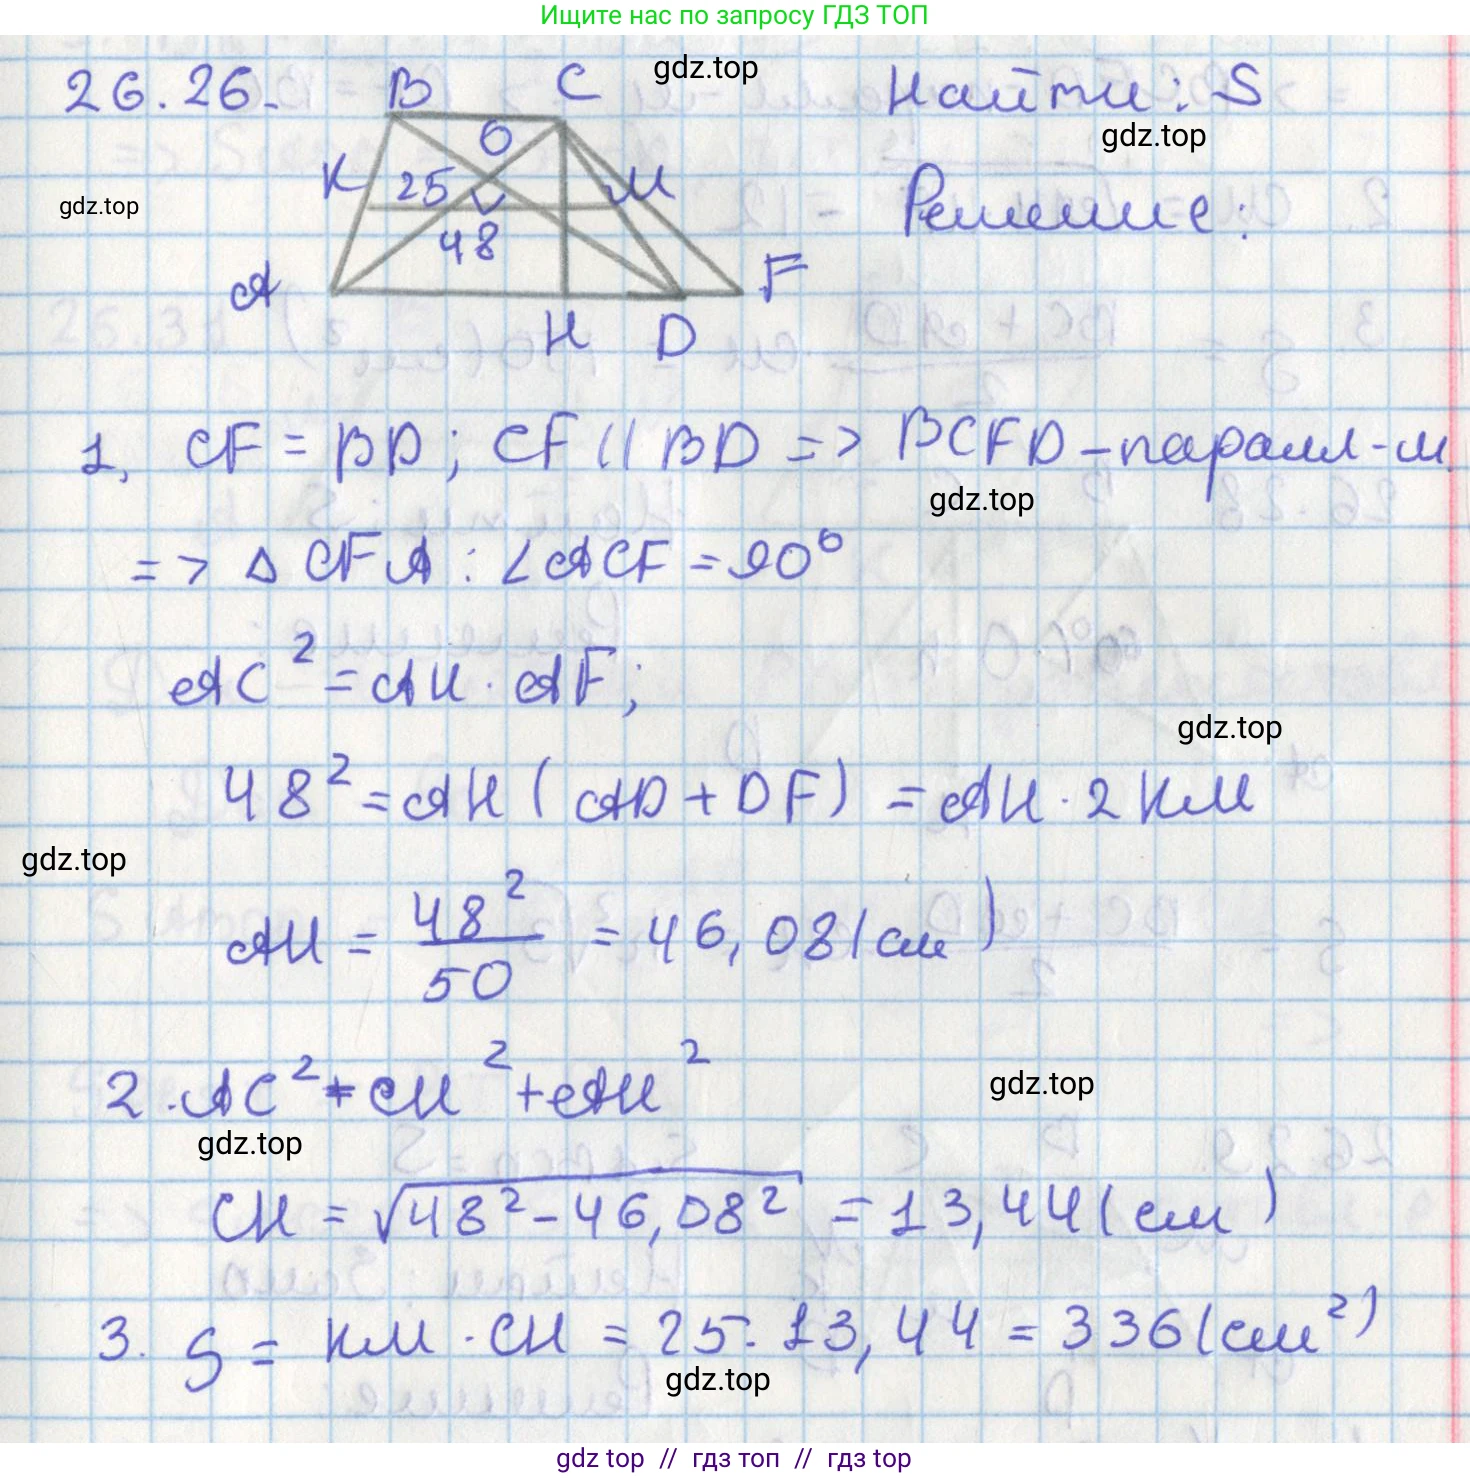 Ищите нас по запросу ГДЗ ТОП
26.26.
B C
gdz.top
Найти: S
gdz.top
O
K 25 M
gdz.top
Решение:
48
A F
H D
1. CF = BD; CF || BD => BCFD - паралл-м.
gdz.top
=> Δ CFA : ∠ACF = 90°
AC² = AH · AF;
gdz.top
48² = AH ( AD + DF ) = AH · 2 KM
gdz.top
AH = 48² / 50 = 46,08 (см)
2. AC² = CH² + AH²
gdz.top
gdz.top
CH = √48² - 46,08² = 13,44 (см)
3. S = KM · CH = 25 · 13,44 = 336 (см²)
gdz.top
gdz top // гдз топ // гдз top